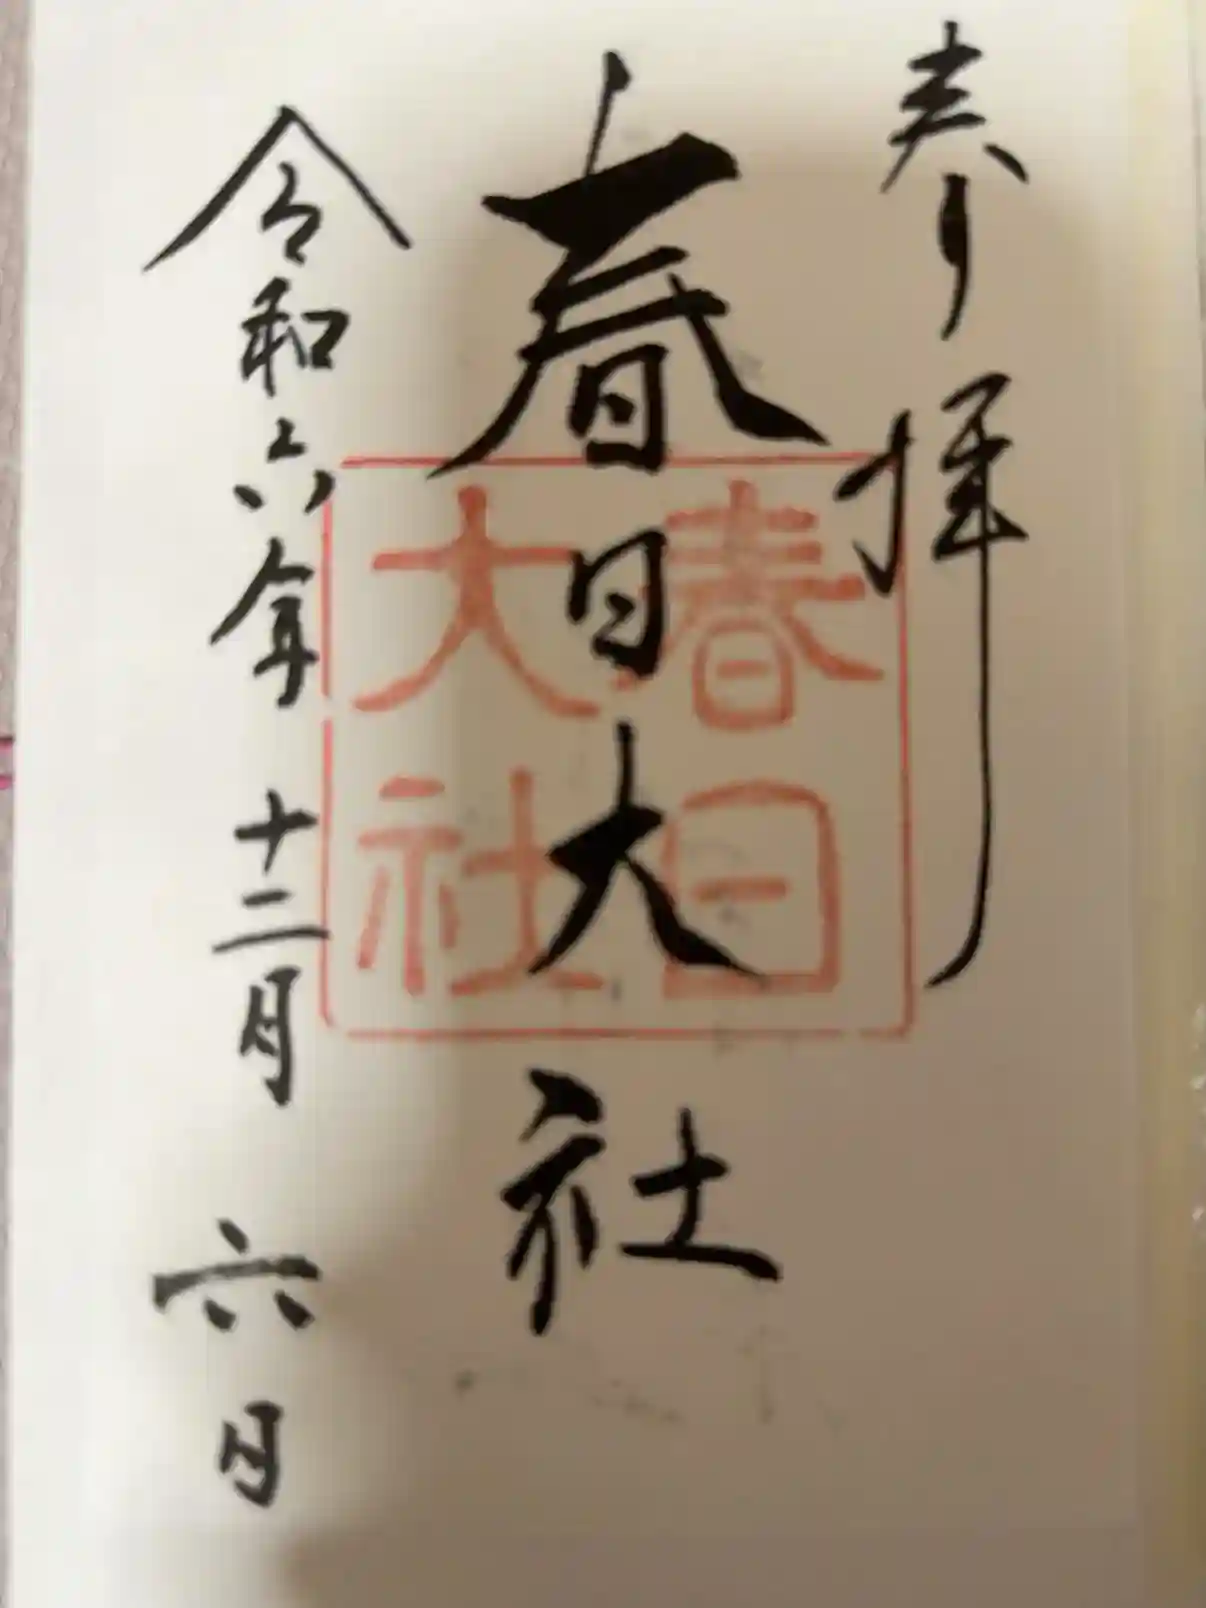 奉拝
春日大社
春日
大社
令和六年十二月六日